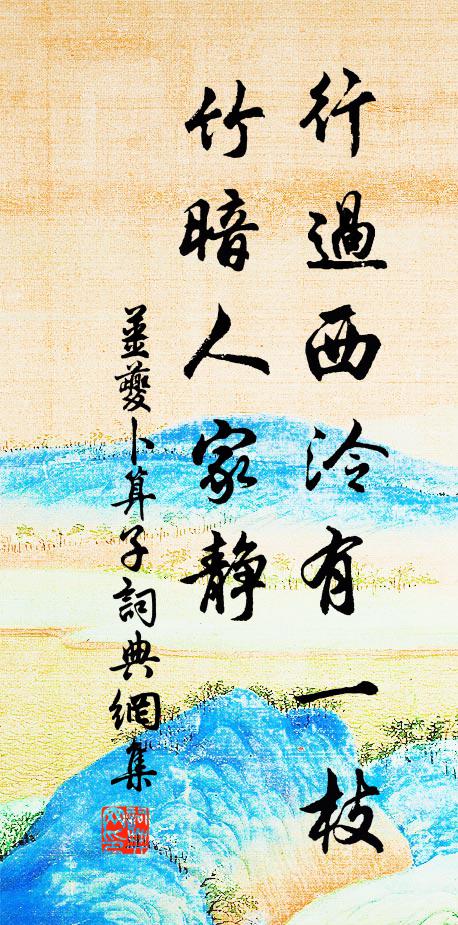 行過西泠有一枝
竹暗人家静
姜夔卜算子詞典網集